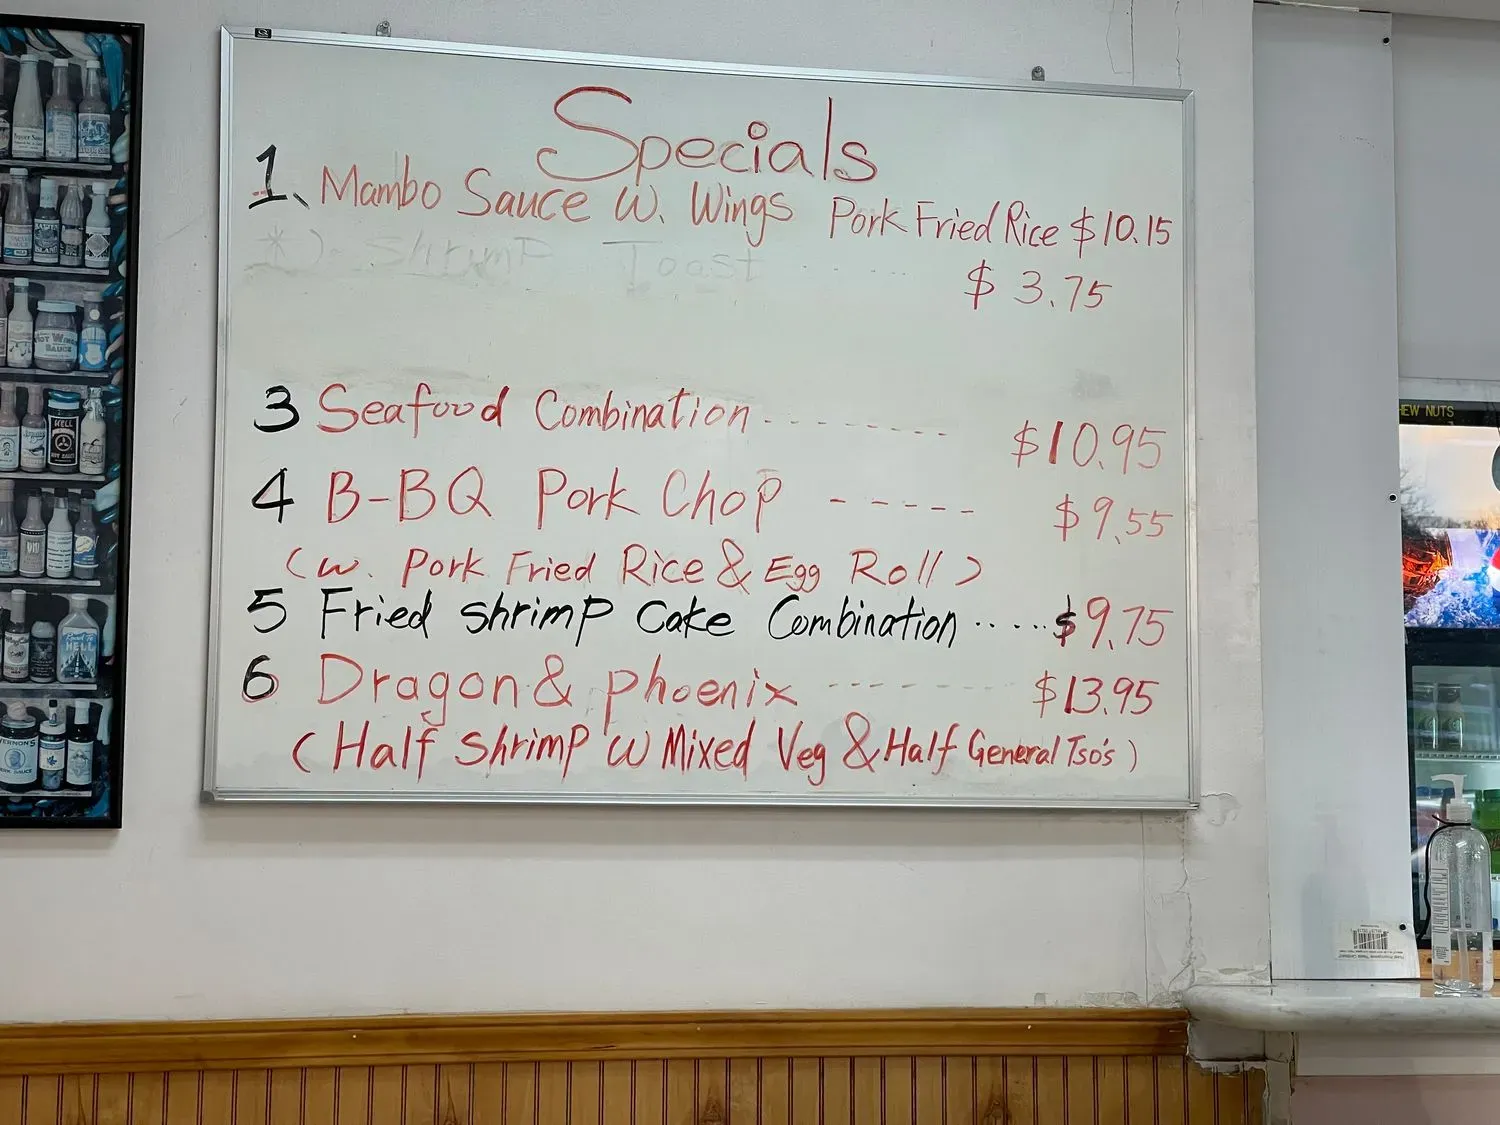 Specials
1. Mambo Sauce W. Wings Pork Fried Rice $10.15
*) Shrimp Toast ........ $3.75
3 Seafood Combination --------- $10.95
4 B-BQ Pork Chop ----- $9.55
(w. Pork Fried Rice & Egg Roll)
5 Fried shrimp Cake Combination ..... $9.75
6 Dragon & phoenix ------- $13.95
(Half shrimp w Mixed Veg & Half General Tso's)
HEW NUTS
HOT WINGS
SAUCE
HELL
VERNON'S